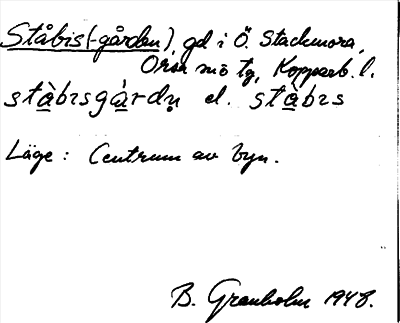 Ståbis(-gården), gd i Ö. Stackmora,
Orsa mö tg, Kopparb. l.
stàbısgàrdn̥ el. stàbıs
Läge: Centrum av byn.
B. Granholm 1948.